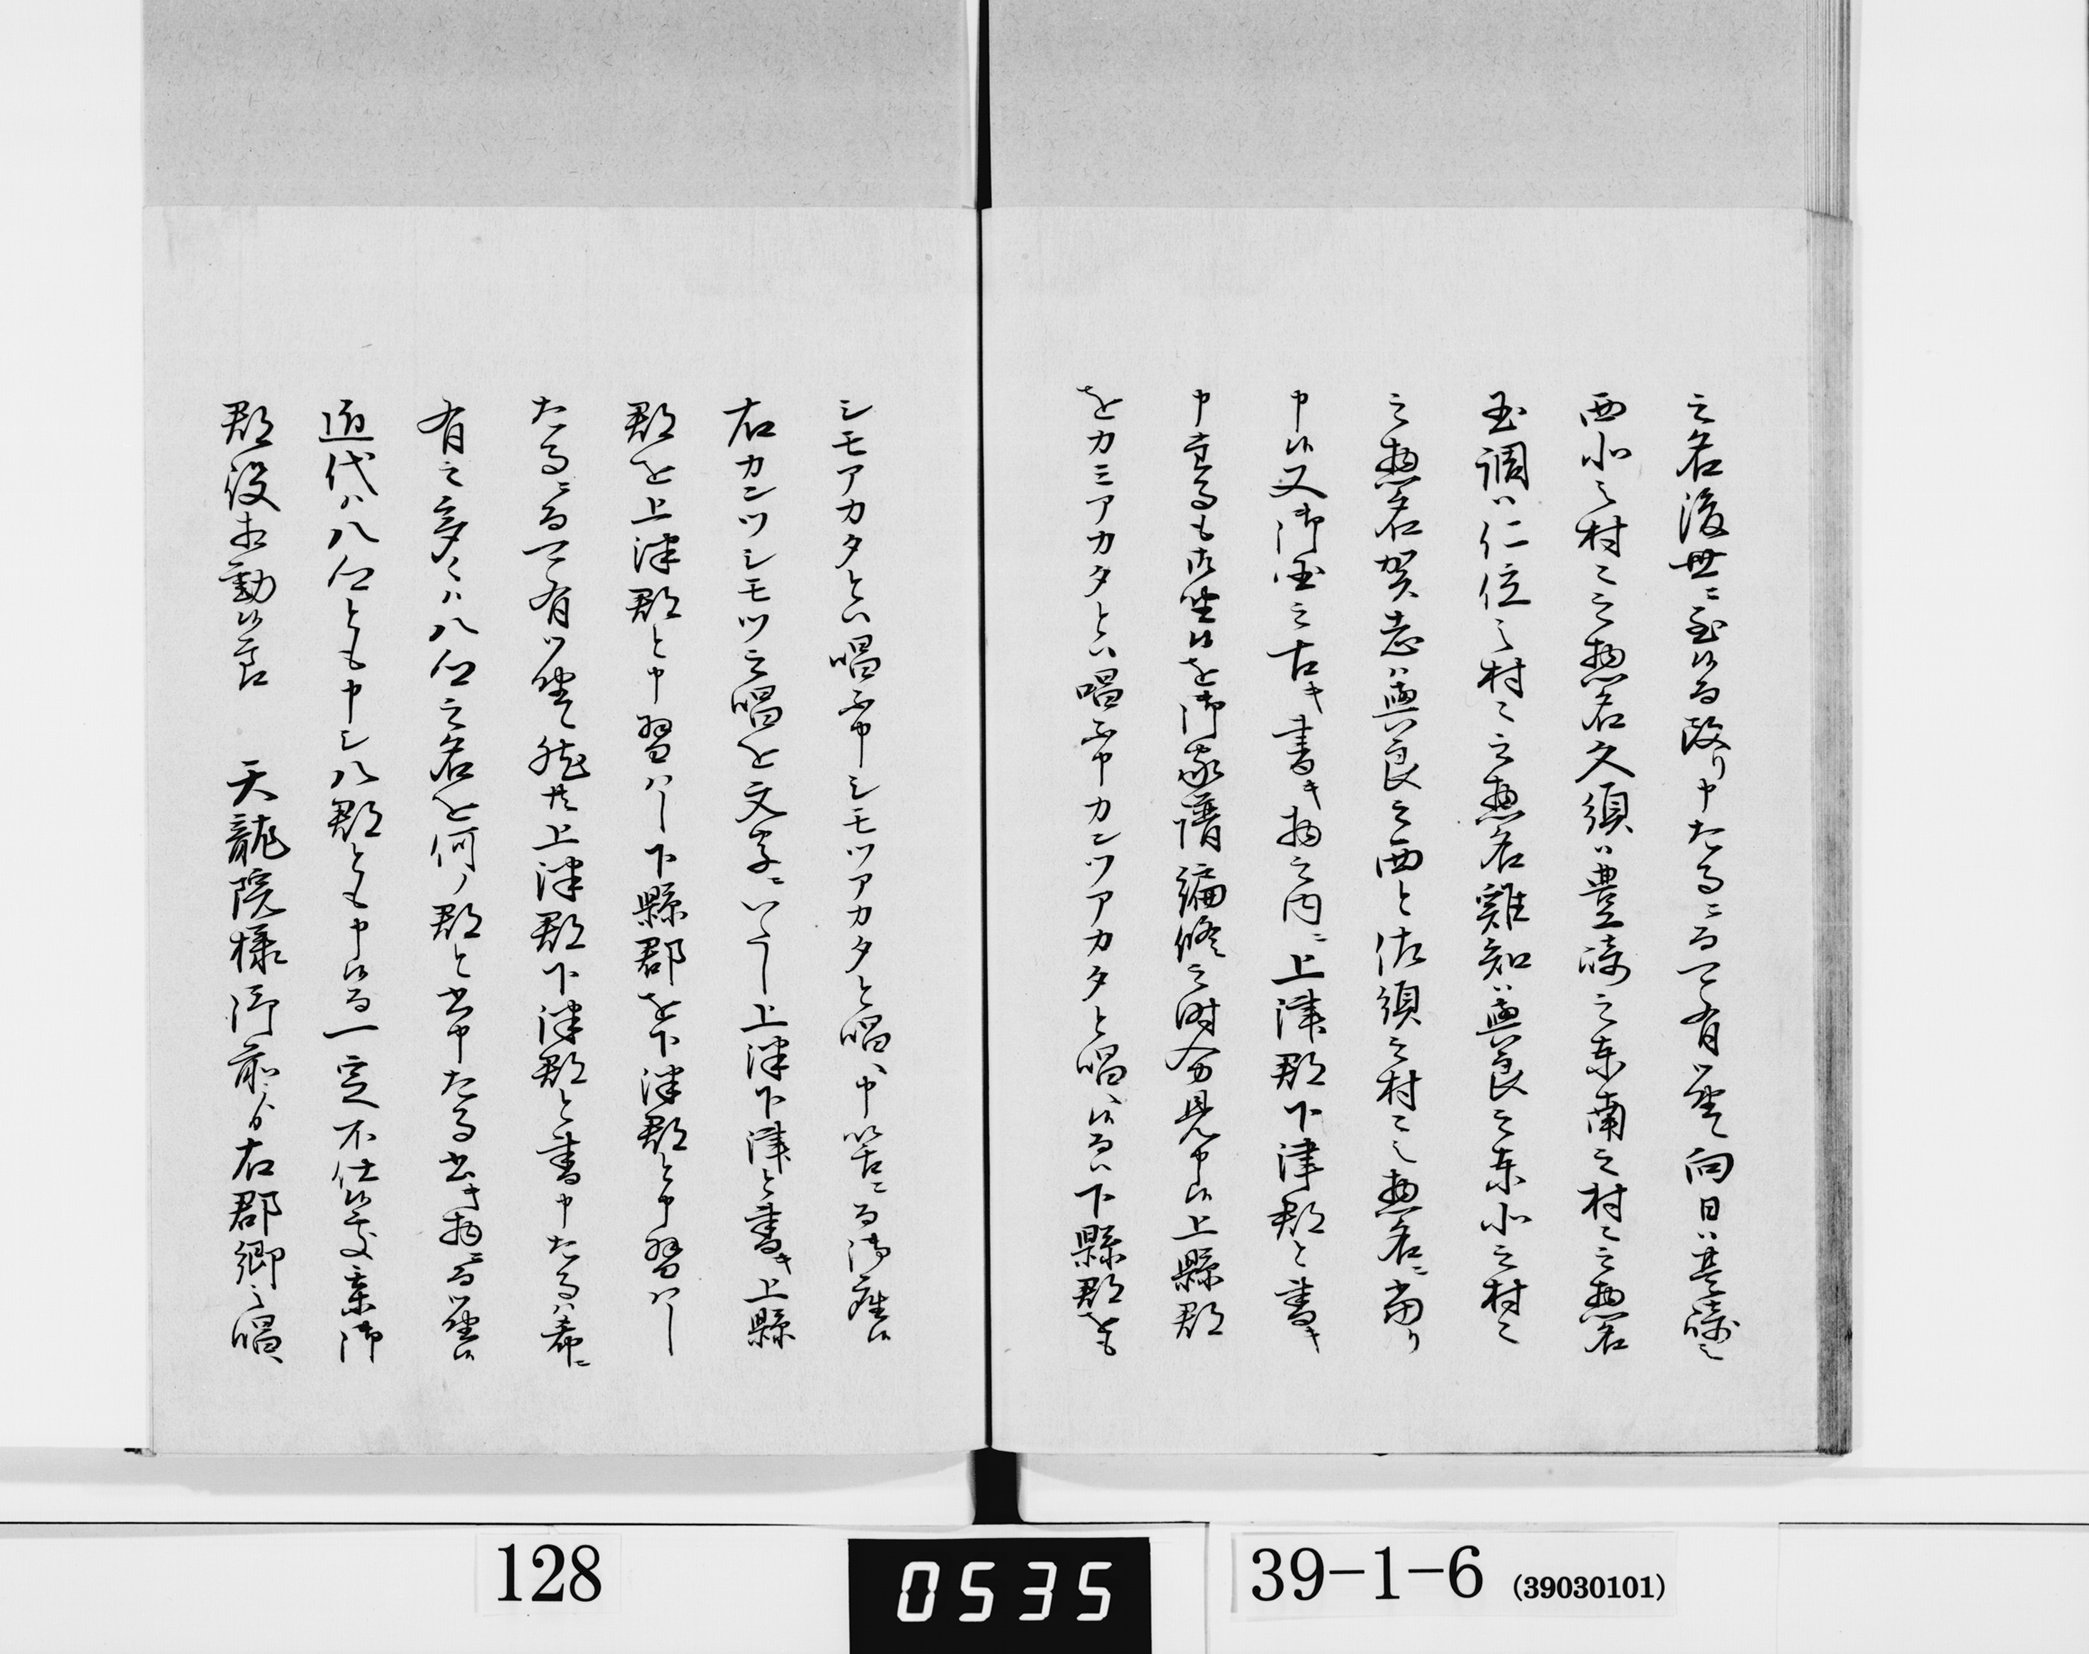 之名後世ニ至候而改り申たる事ニ而可有御座候向日ハ豊崎之
西北之村々之惣名久須ハ豊崎之東南之村々之惣名
玉調ハ仁位之村々之惣名雞知ハ與良之東北之村々
之惣名賀志ハ與良之西と佐須之村々之惣名ニ当り
申候又御国之古キ書キ物之内ニ上津郡下津郡と書キ
申事も御座候を御家譜編修之時分見申候上縣郡
をカミアカタとハ唱不申カンツアカタと唱へ候而ハ下縣郡をも
シモアカタとハ唱不申シモツアカタと唱へ申筈ニ而御座候
右カンツシモツ之唱を文字ニいたし上津下津と書キ上縣
郡を上津郡と申習ハし下縣郡を下津郡と申習ハし
たる事ニ而可有御座候然共上津郡下津郡と書申たる事ハ希ニ
有之多くハ八人之名を何ノ郡と書申たる書キ物ニ而御座候
近代ハ八人とも申シ八郡とも申候而一定不仕候処某御
郡役相勤候節 天龍院様御前より右郡郷之唱へ
128
0535
39-1-6 (39030101)